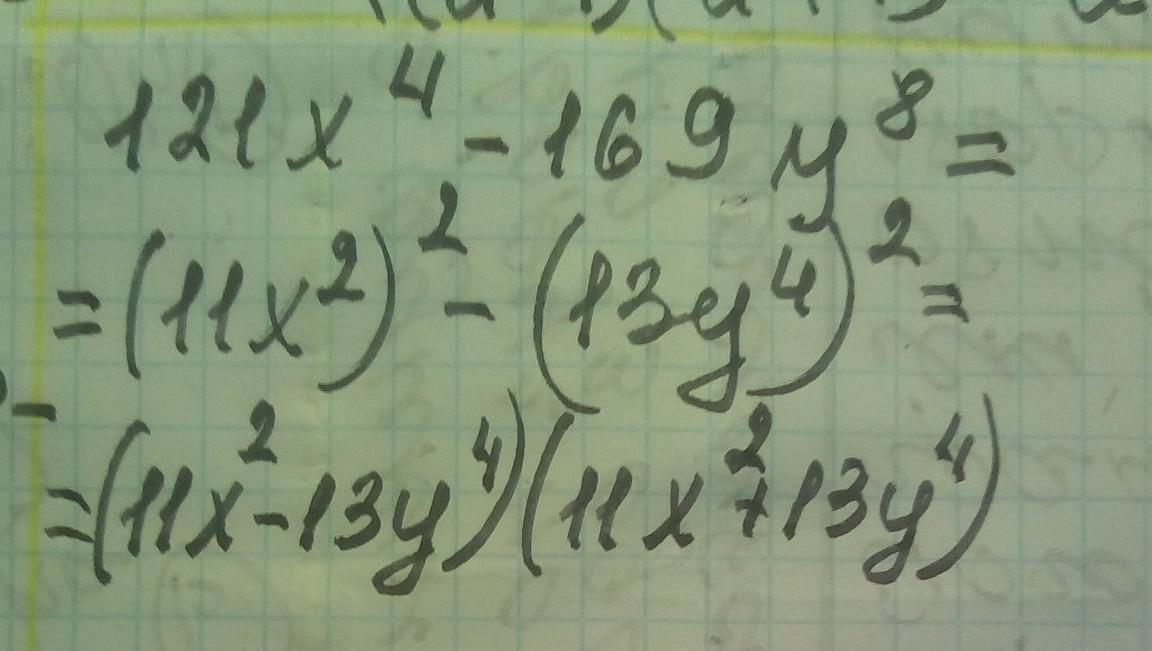 121x⁴ - 169y⁸ =
= (11x²)² - (13y⁴)² =
= (11x² - 13y⁴)(11x² + 13y⁴)